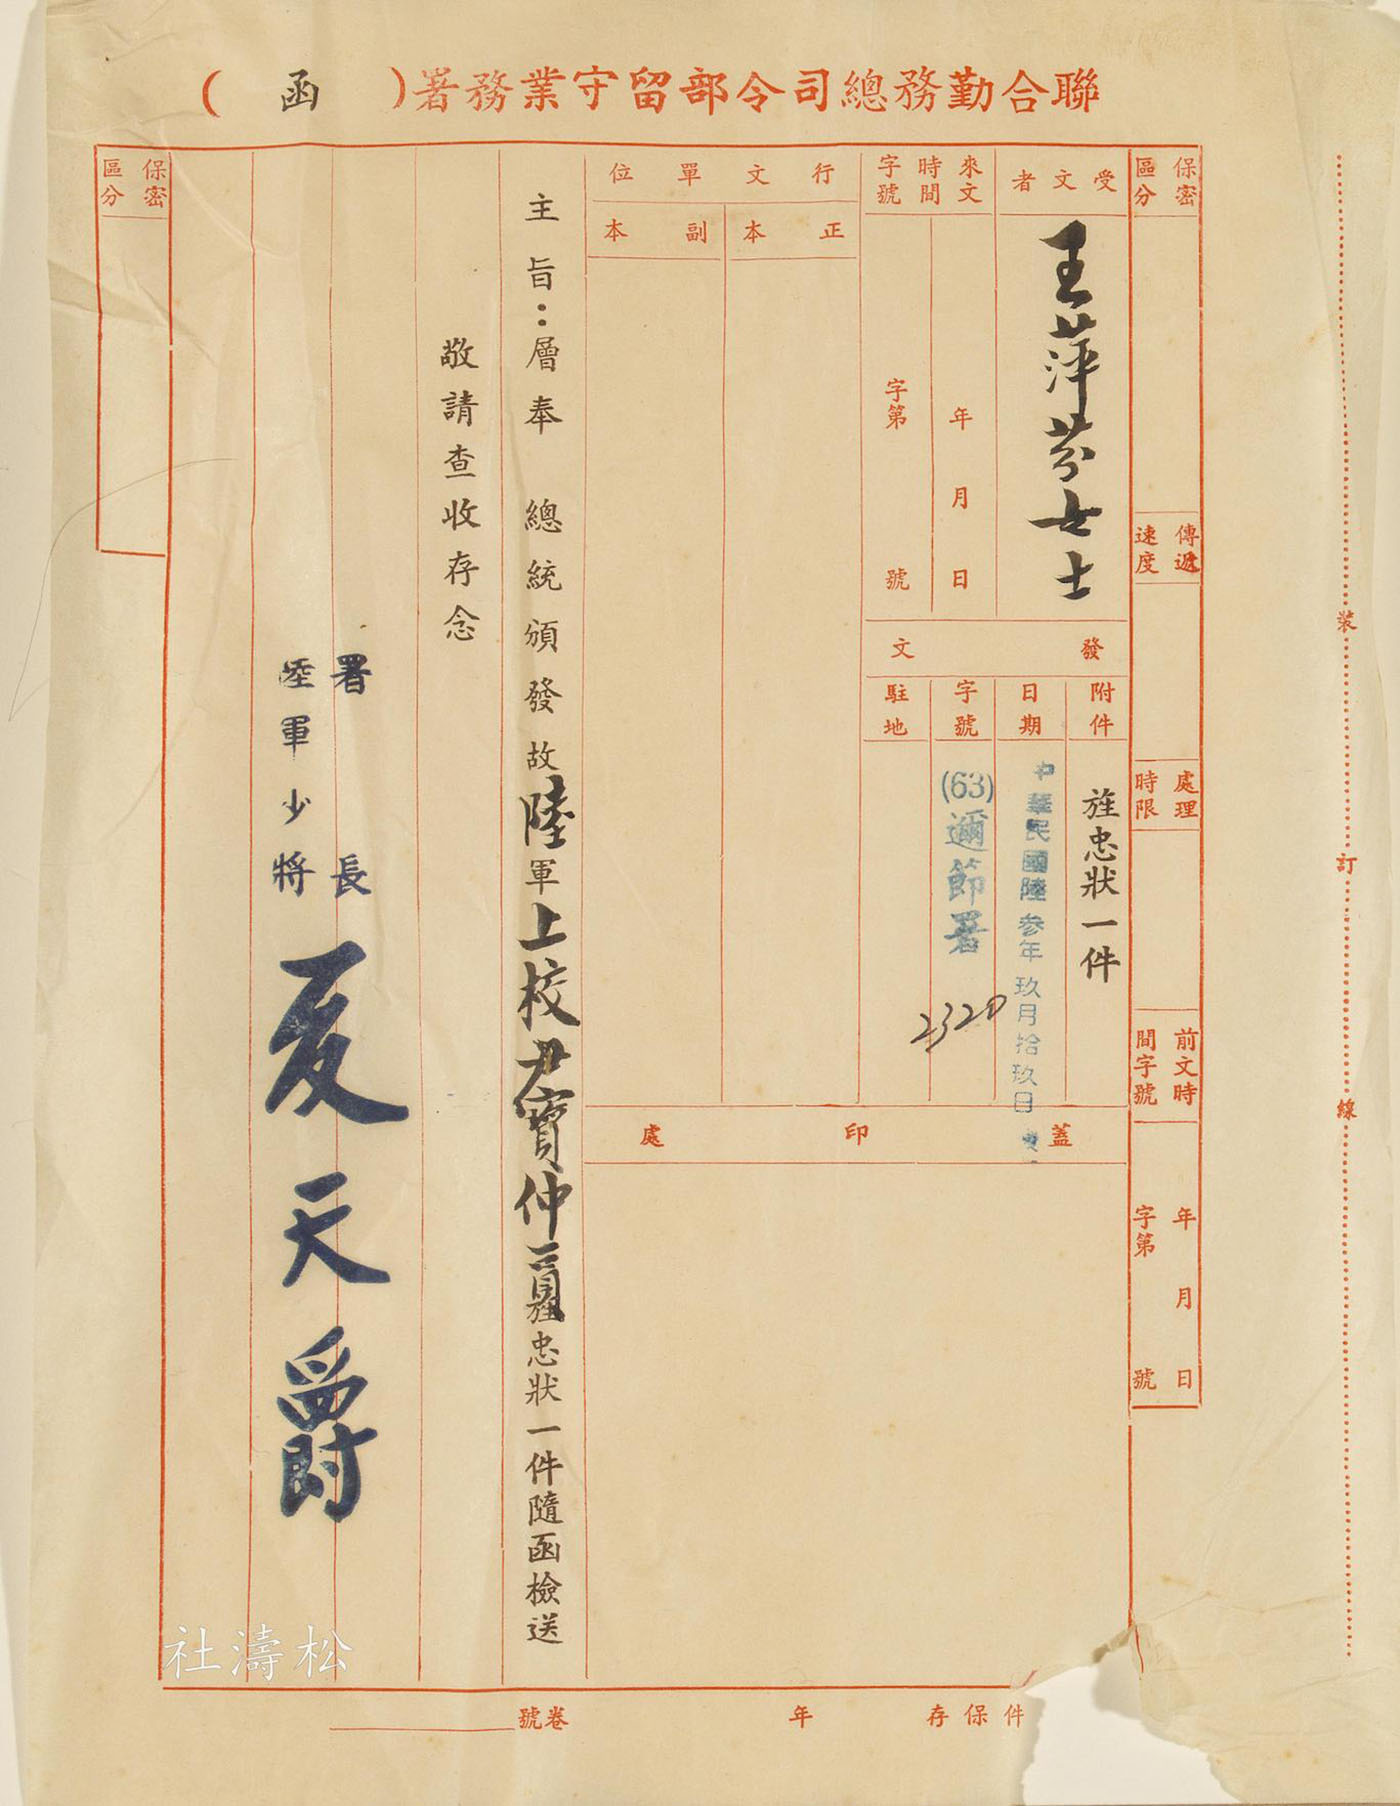 聯合勤務總司令部留守業務署（函）
保密區分
傳遞速度
處理時限
前文時間字號
年月日
字第號
受文者
王萍芬女士
來文時間字號
年月日
字第號
行文單位
正本
副本
發文
附件
旌忠狀一件
日期
中華民國陸參年玖月拾玖日
字號
(63)邇節署
2320
駐地
蓋印處
主旨：層奉 總統頒發故陸軍上校尹寶仲一員旌忠狀一件隨函檢送
敬請查收存念
署長
陸軍少將
夏天爵
保密區分
裝訂線
件保存年
卷號
松濤社